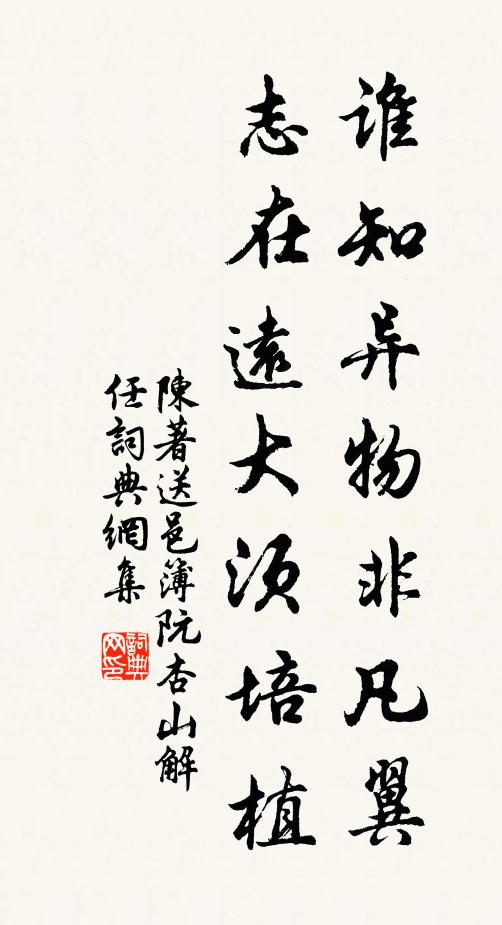 谁知异物非凡翼
志在遠大须培植
陳著送邑簿阮杏山解
任詞典網集
詞典网印